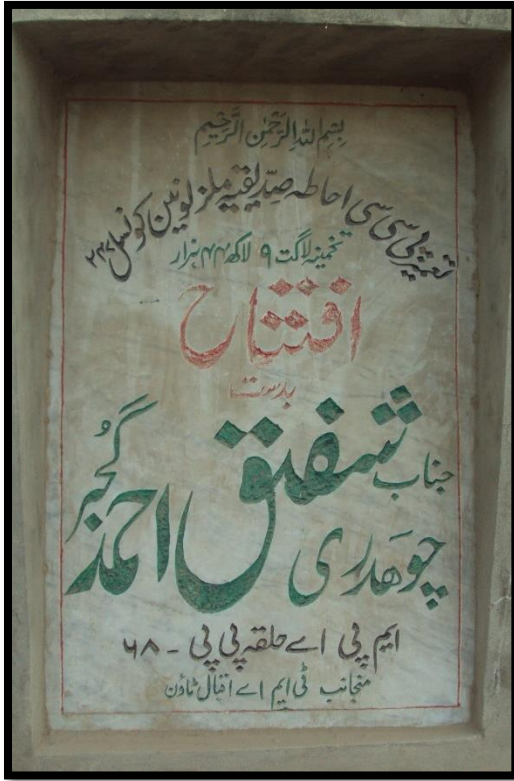 بِسْمِ اللّٰهِ الرَّحْمٰنِ الرَّحِیْمِ
تعمیر پی سی سی احاطہ صدیقیہ ملز یونین کونسل
تخمینہ لاگت ۹ لاکھ ۴۴ ہزار
افتتاح
بدست
جناب
شفیق احمد گجر
چوھدری
ایم پی اے حلقہ پی پی ۔ ۶۸
منجانب ٹی ایم اے اقبال ٹاؤن